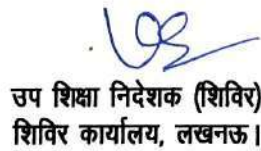 उप शिक्षा निदेशक (शिविर)
शिविर कार्यालय, लखनऊ।